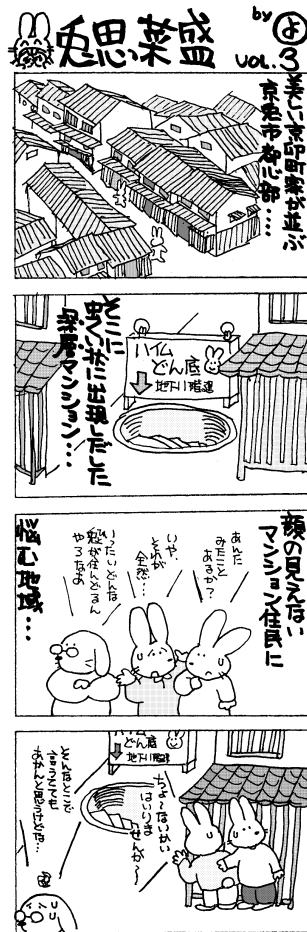 by よ
兎思菜盛
vol.3
美しい京卯町家が並ぶ
京兎市都心部‥‥
そこに
虫くい状に出現しだした
深層マンション‥‥
ハイム
どん底
地下川階建
顔の見えない
マンション住民に
悩む地域‥‥
あんた
みたこと
あるか?
いや、
それが
全然‥‥
いったいどんな
やろなぁ
どん底
地下川階建
ちょ〜ないかい
はいりま
せんか〜
そんなとこで
言うとても
あかんと思うけどな‥‥